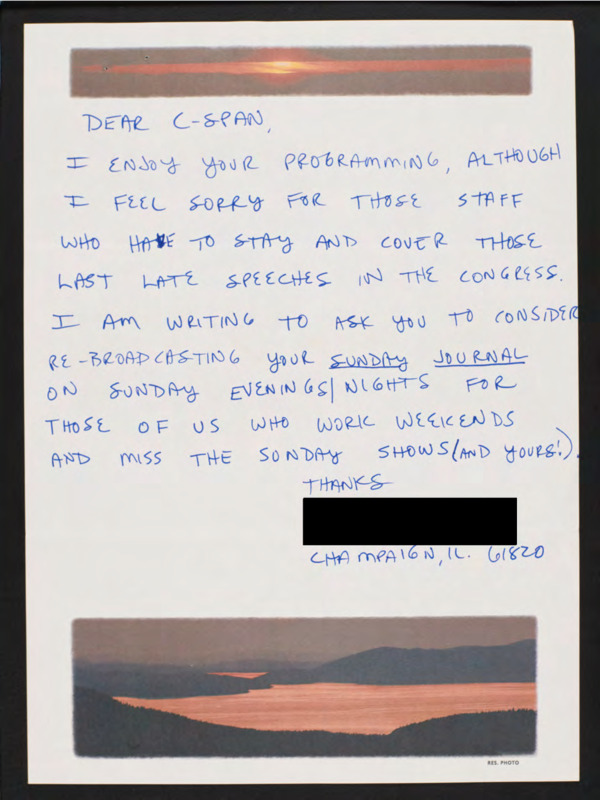 DEAR C-SPAN,
I ENJOY YOUR PROGRAMMING, ALTHOUGH
I FEEL SORRY FOR THOSE STAFF
WHO HAVE TO STAY AND COVER THOSE
LAST LATE SPEECHES IN THE CONGRESS.
I AM WRITING TO ASK YOU TO CONSIDER
RE-BROADCASTING YOUR SUNDAY JOURNAL
ON SUNDAY EVENINGS/NIGHTS FOR
THOSE OF US WHO WORK WEEKENDS
AND MISS THE SUNDAY SHOWS (AND YOURS!).
THANKS
CHAMPAIGN, IL. 61820
RES. PHOTO